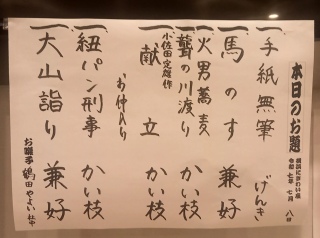 本日のお題
横浜にぎわい座
令和七年七月八日
一 手紙無筆 げんき
一 馬のす 兼好
一 火男蕎麦 かい枝
一 聾の川渡り かい枝
小佐田定雄作
一 献立 かい枝
お仲入り
一 紐パン刑事 かい枝
一 大山詣り 兼好
お囃子 鶴田やよい